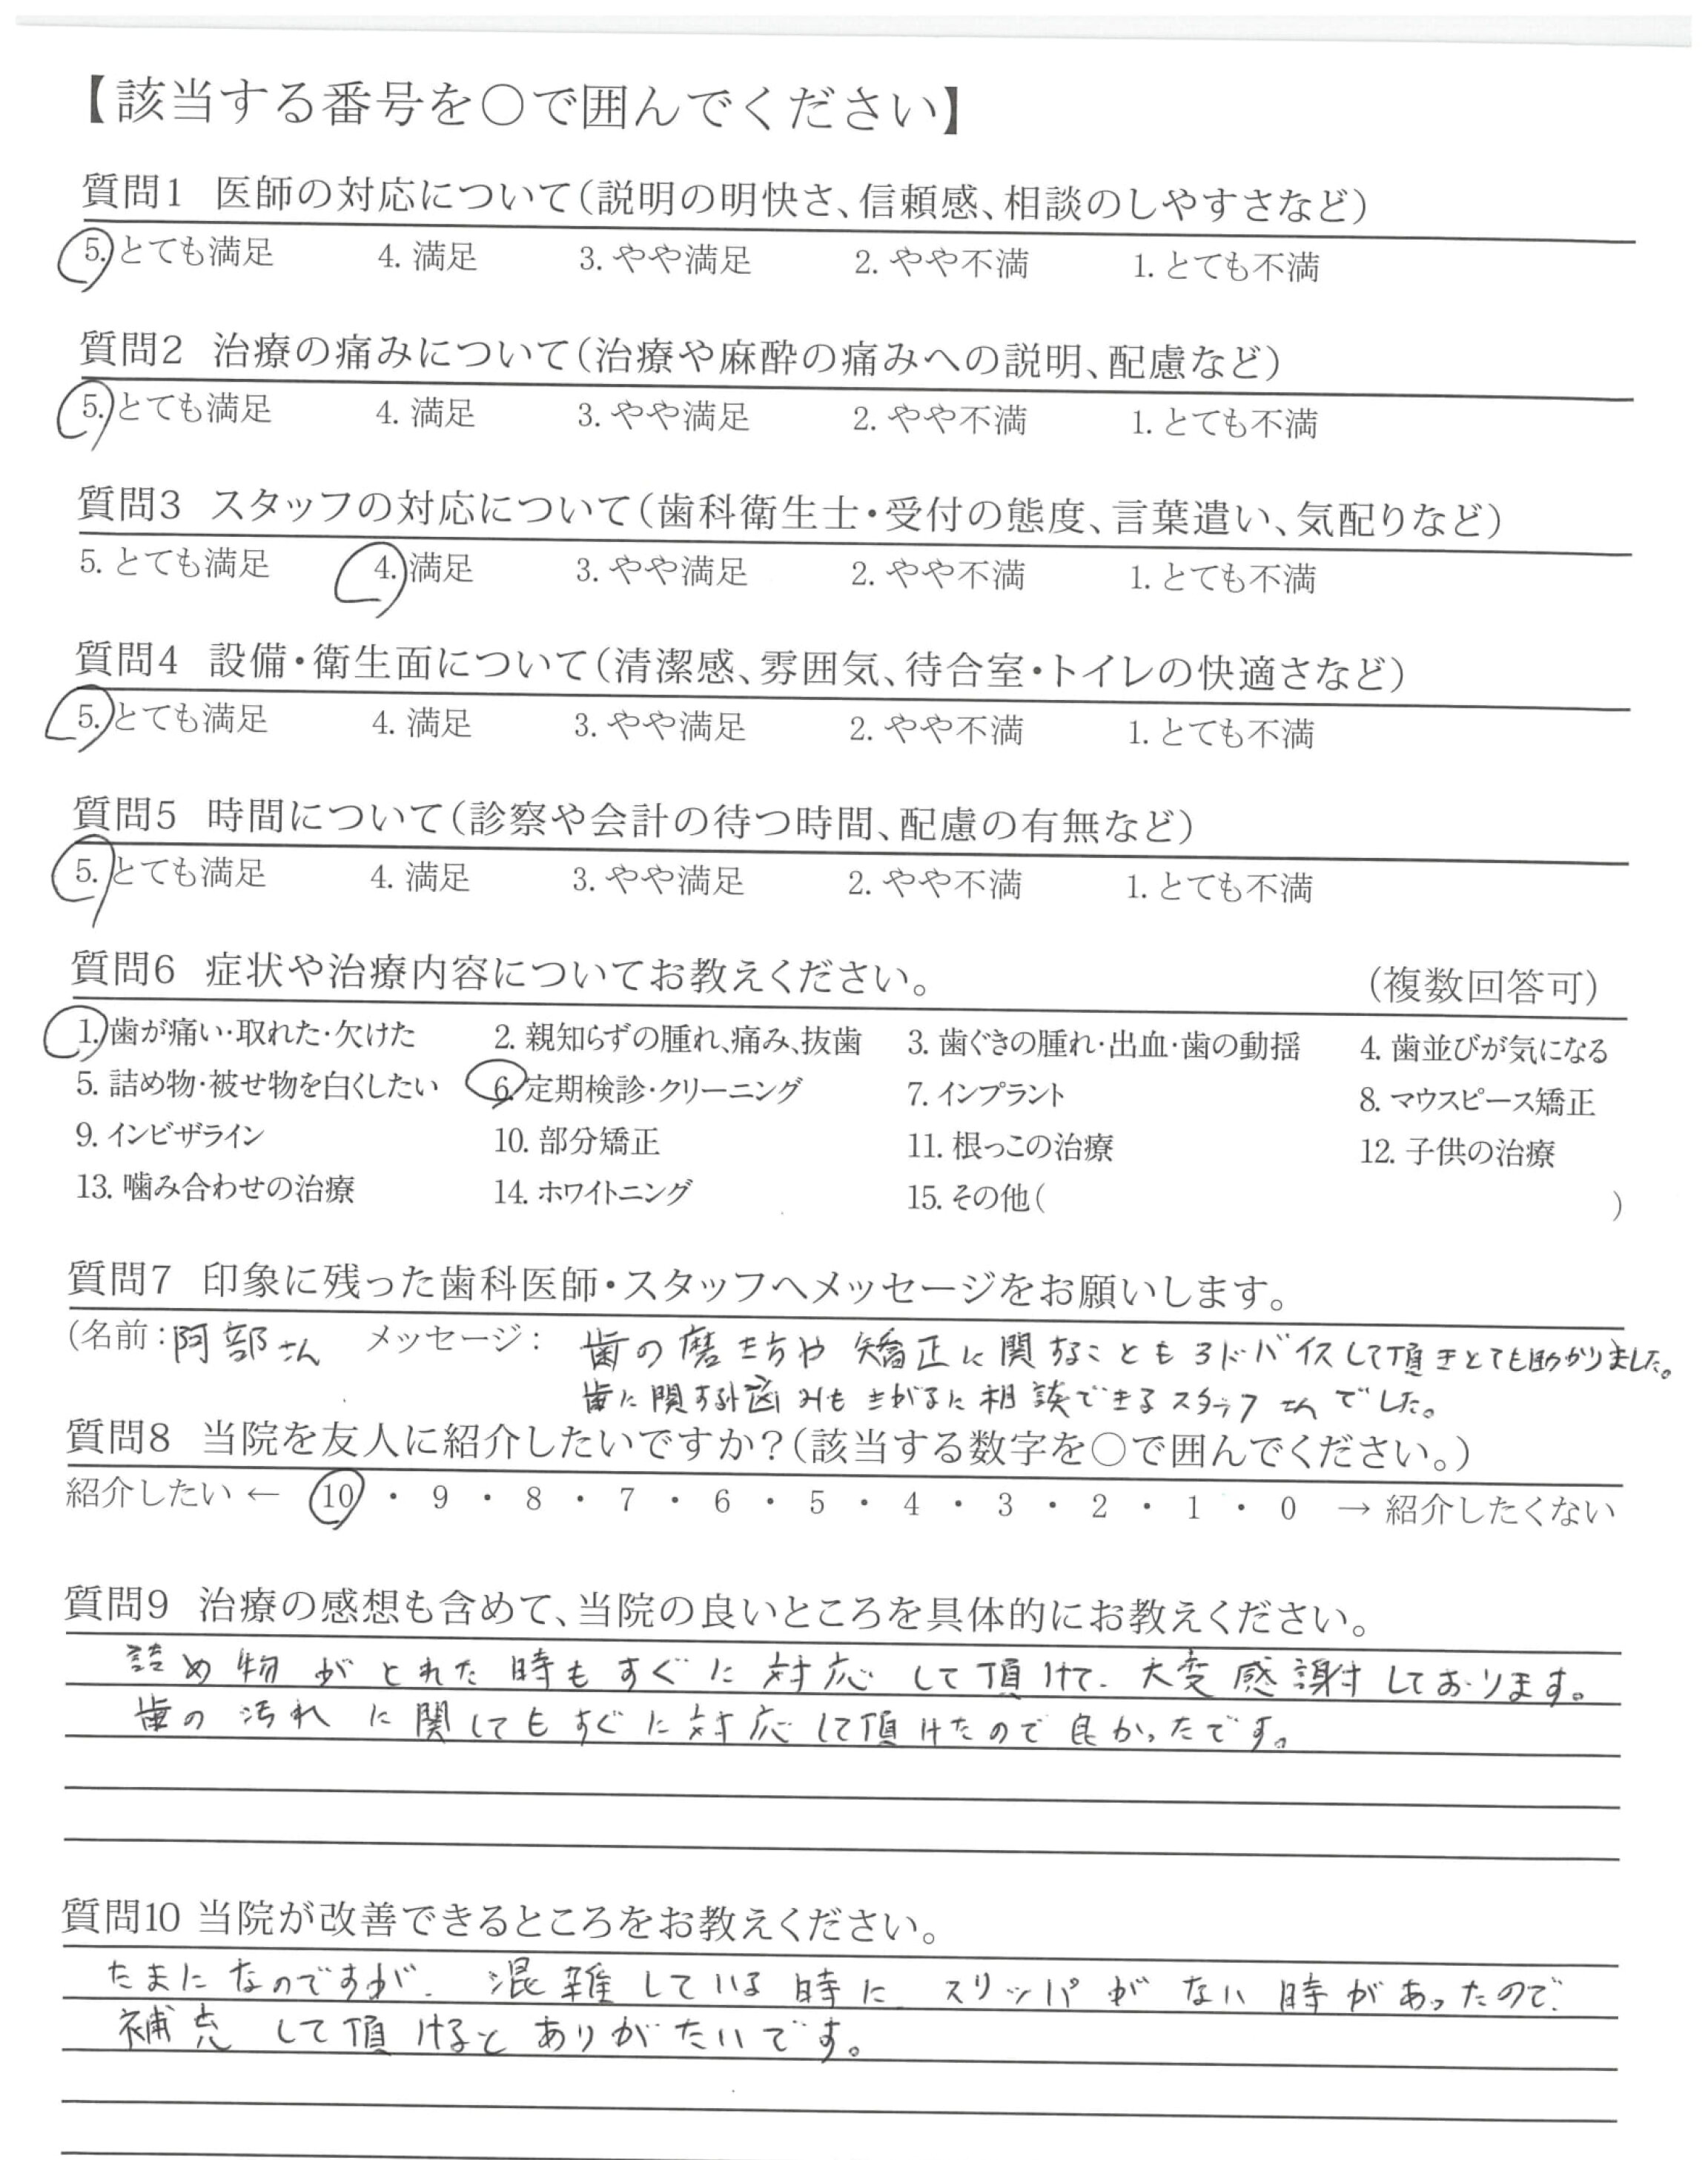 【該当する番号を○で囲んでください】
質問1 医師の対応について(説明の明快さ、信頼感、相談のしやすさなど)
5. とても満足 4. 満足 3. やや満足 2. やや不満 1. とても不満
質問2 治療の痛みについて(治療や麻酔の痛みへの説明、配慮など)
5. とても満足 4. 満足 3. やや満足 2. やや不満 1. とても不満
質問3 スタッフの対応について(歯科衛生士・受付の態度、言葉遣い、気配りなど)
5. とても満足 4. 満足 3. やや満足 2. やや不満 1. とても不満
質問4 設備・衛生面について(清潔感、雰囲気、待合室・トイレの快適さなど)
5. とても満足 4. 満足 3. やや満足 2. やや不満 1. とても不満
質問5 時間について(診察や会計の待つ時間、配慮の有無など)
5. とても満足 4. 満足 3. やや満足 2. やや不満 1. とても不満
質問6 症状や治療内容についてお教えください。 (複数回答可)
1. 歯が痛い・取れた・欠けた 2. 親知らずの腫れ、痛み、抜歯 3. 歯ぐきの腫れ・出血・歯の動揺 4. 歯並びが気になる
5. 詰め物・被せ物を白くしたい 6. 定期検診・クリーニング 7. インプラント 8. マウスピース矯正
9. インビザライン 10. 部分矯正 11. 根っこの治療 12. 子供の治療
13. 噛み合わせの治療 14. ホワイトニング 15. その他( )
質問7 印象に残った歯科医師・スタッフへメッセージをお願いします。
(名前:阿部さん メッセージ: 歯の磨き方や矯正に関することもアドバイスして頂きとても助かりました。
歯に関する悩みもきがるに相談できるスタッフさんでした。
質問8 当院を友人に紹介したいですか?(該当する数字を○で囲んでください。)
紹介したい ← 10 ・ 9 ・ 8 ・ 7 ・ 6 ・ 5 ・ 4 ・ 3 ・ 2 ・ 1 ・ 0 → 紹介したくない
質問9 治療の感想も含めて、当院の良いところを具体的にお教えください。
詰め物がとれた時もすぐに対応して頂けて、大変感謝しております。
歯の汚れに関してもすぐに対応して頂けたので良かったです。
質問10 当院が改善できるところをお教えください。
たまになのですが、混雑している時にスリッパがない時があったので、
補充して頂けるとありがたいです。